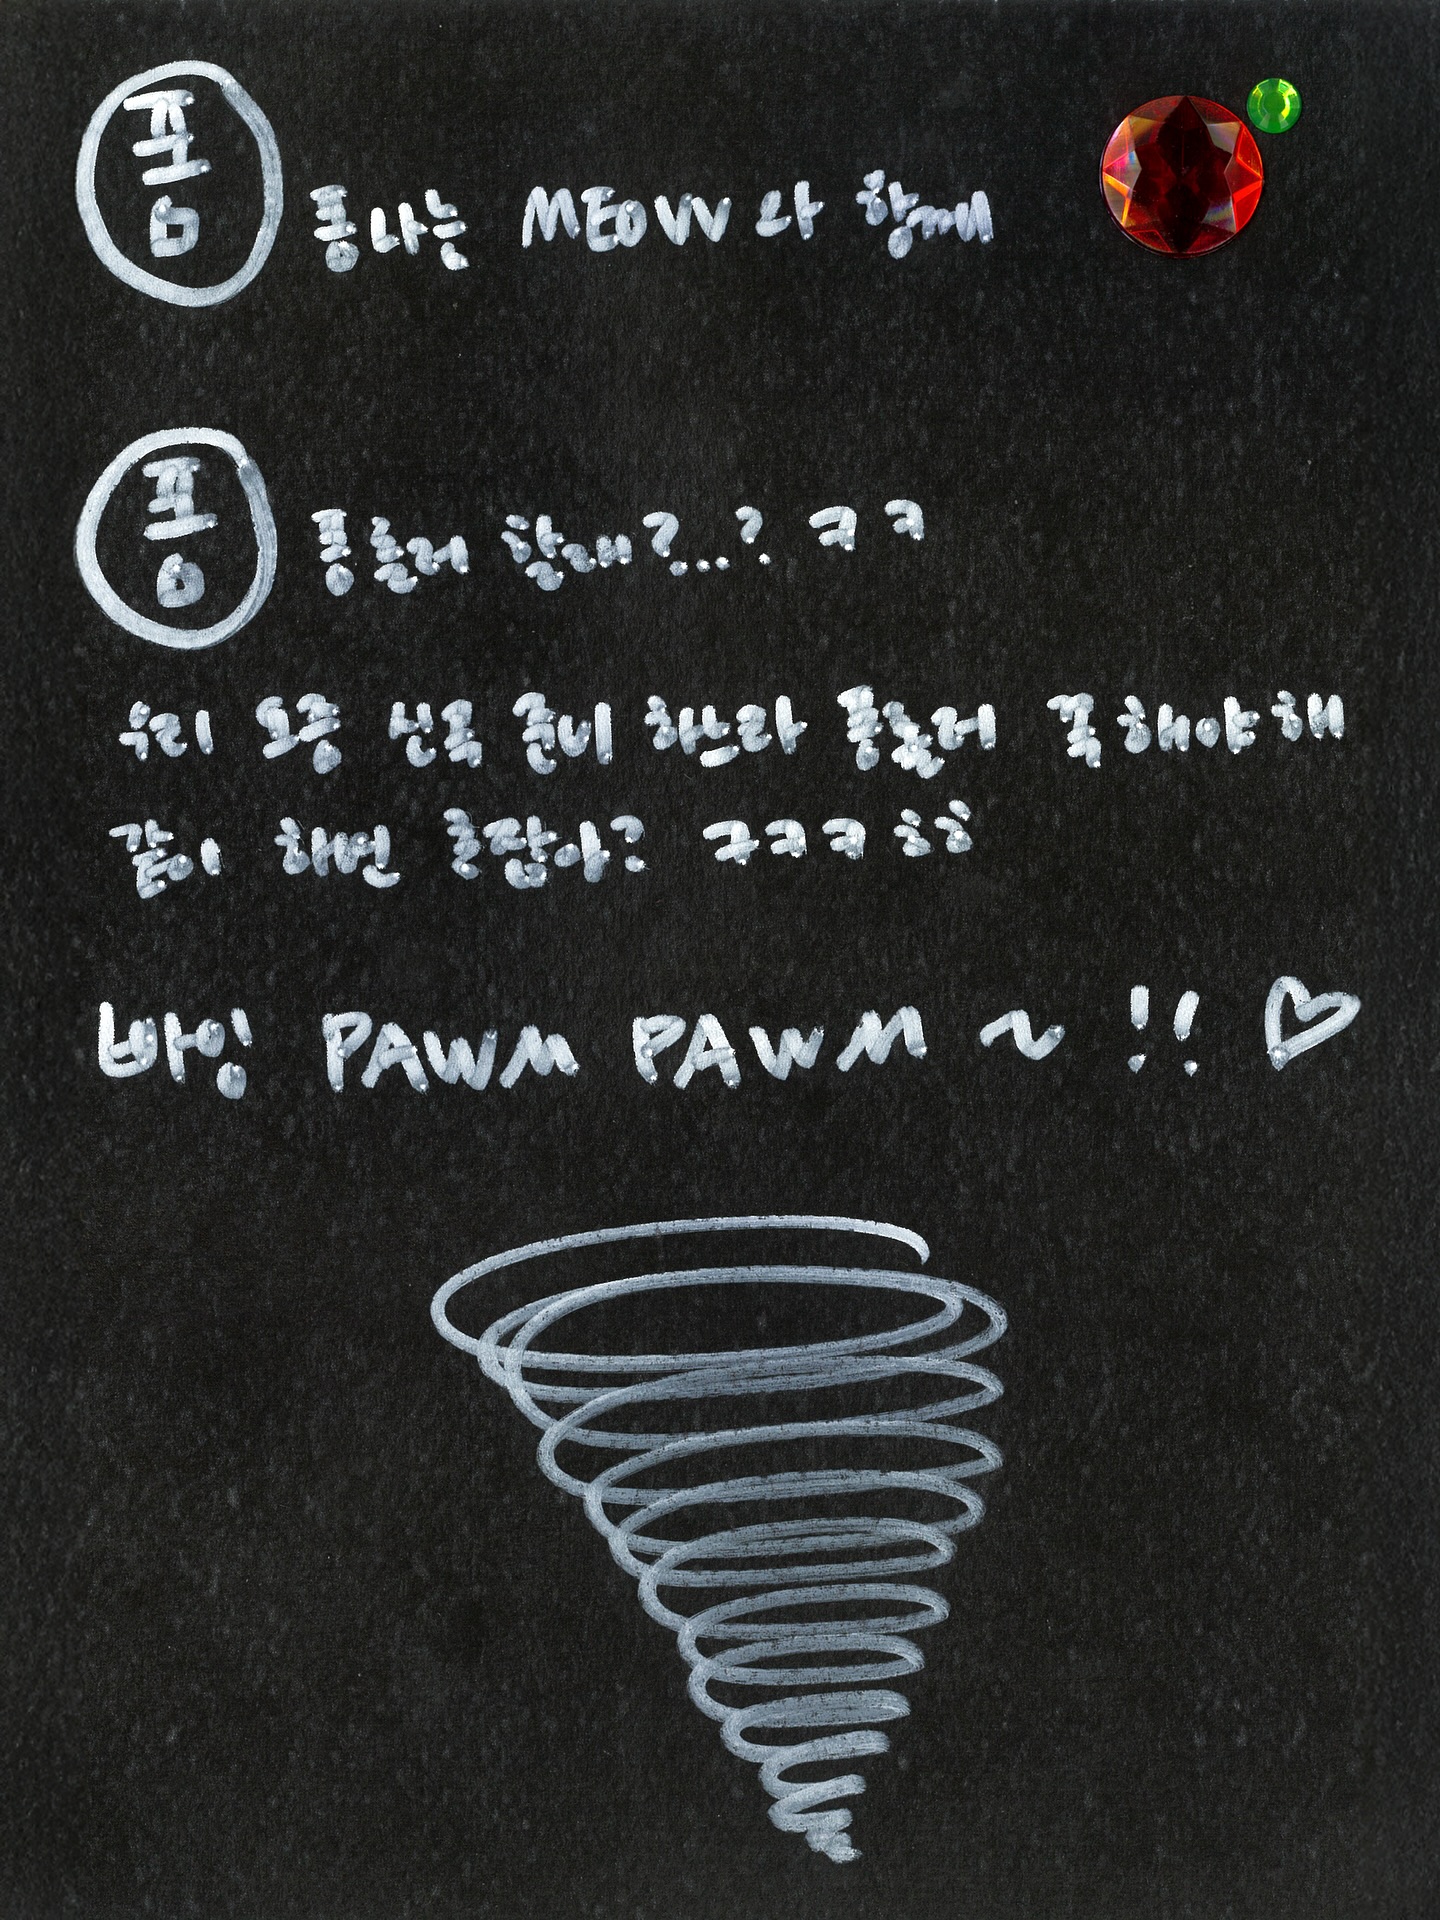 폼 폼나는 MEOW와 함께
폼 폼 올려 할래?..? ㅋㅋ
우리 요즘 신곡 준비 하느라 폼 올려 꼭 해야 해
같이 하면 좋잖아? ㅋㅋㅋㅎㅎ
바잉 PAWM PAWM ~ !! ♡